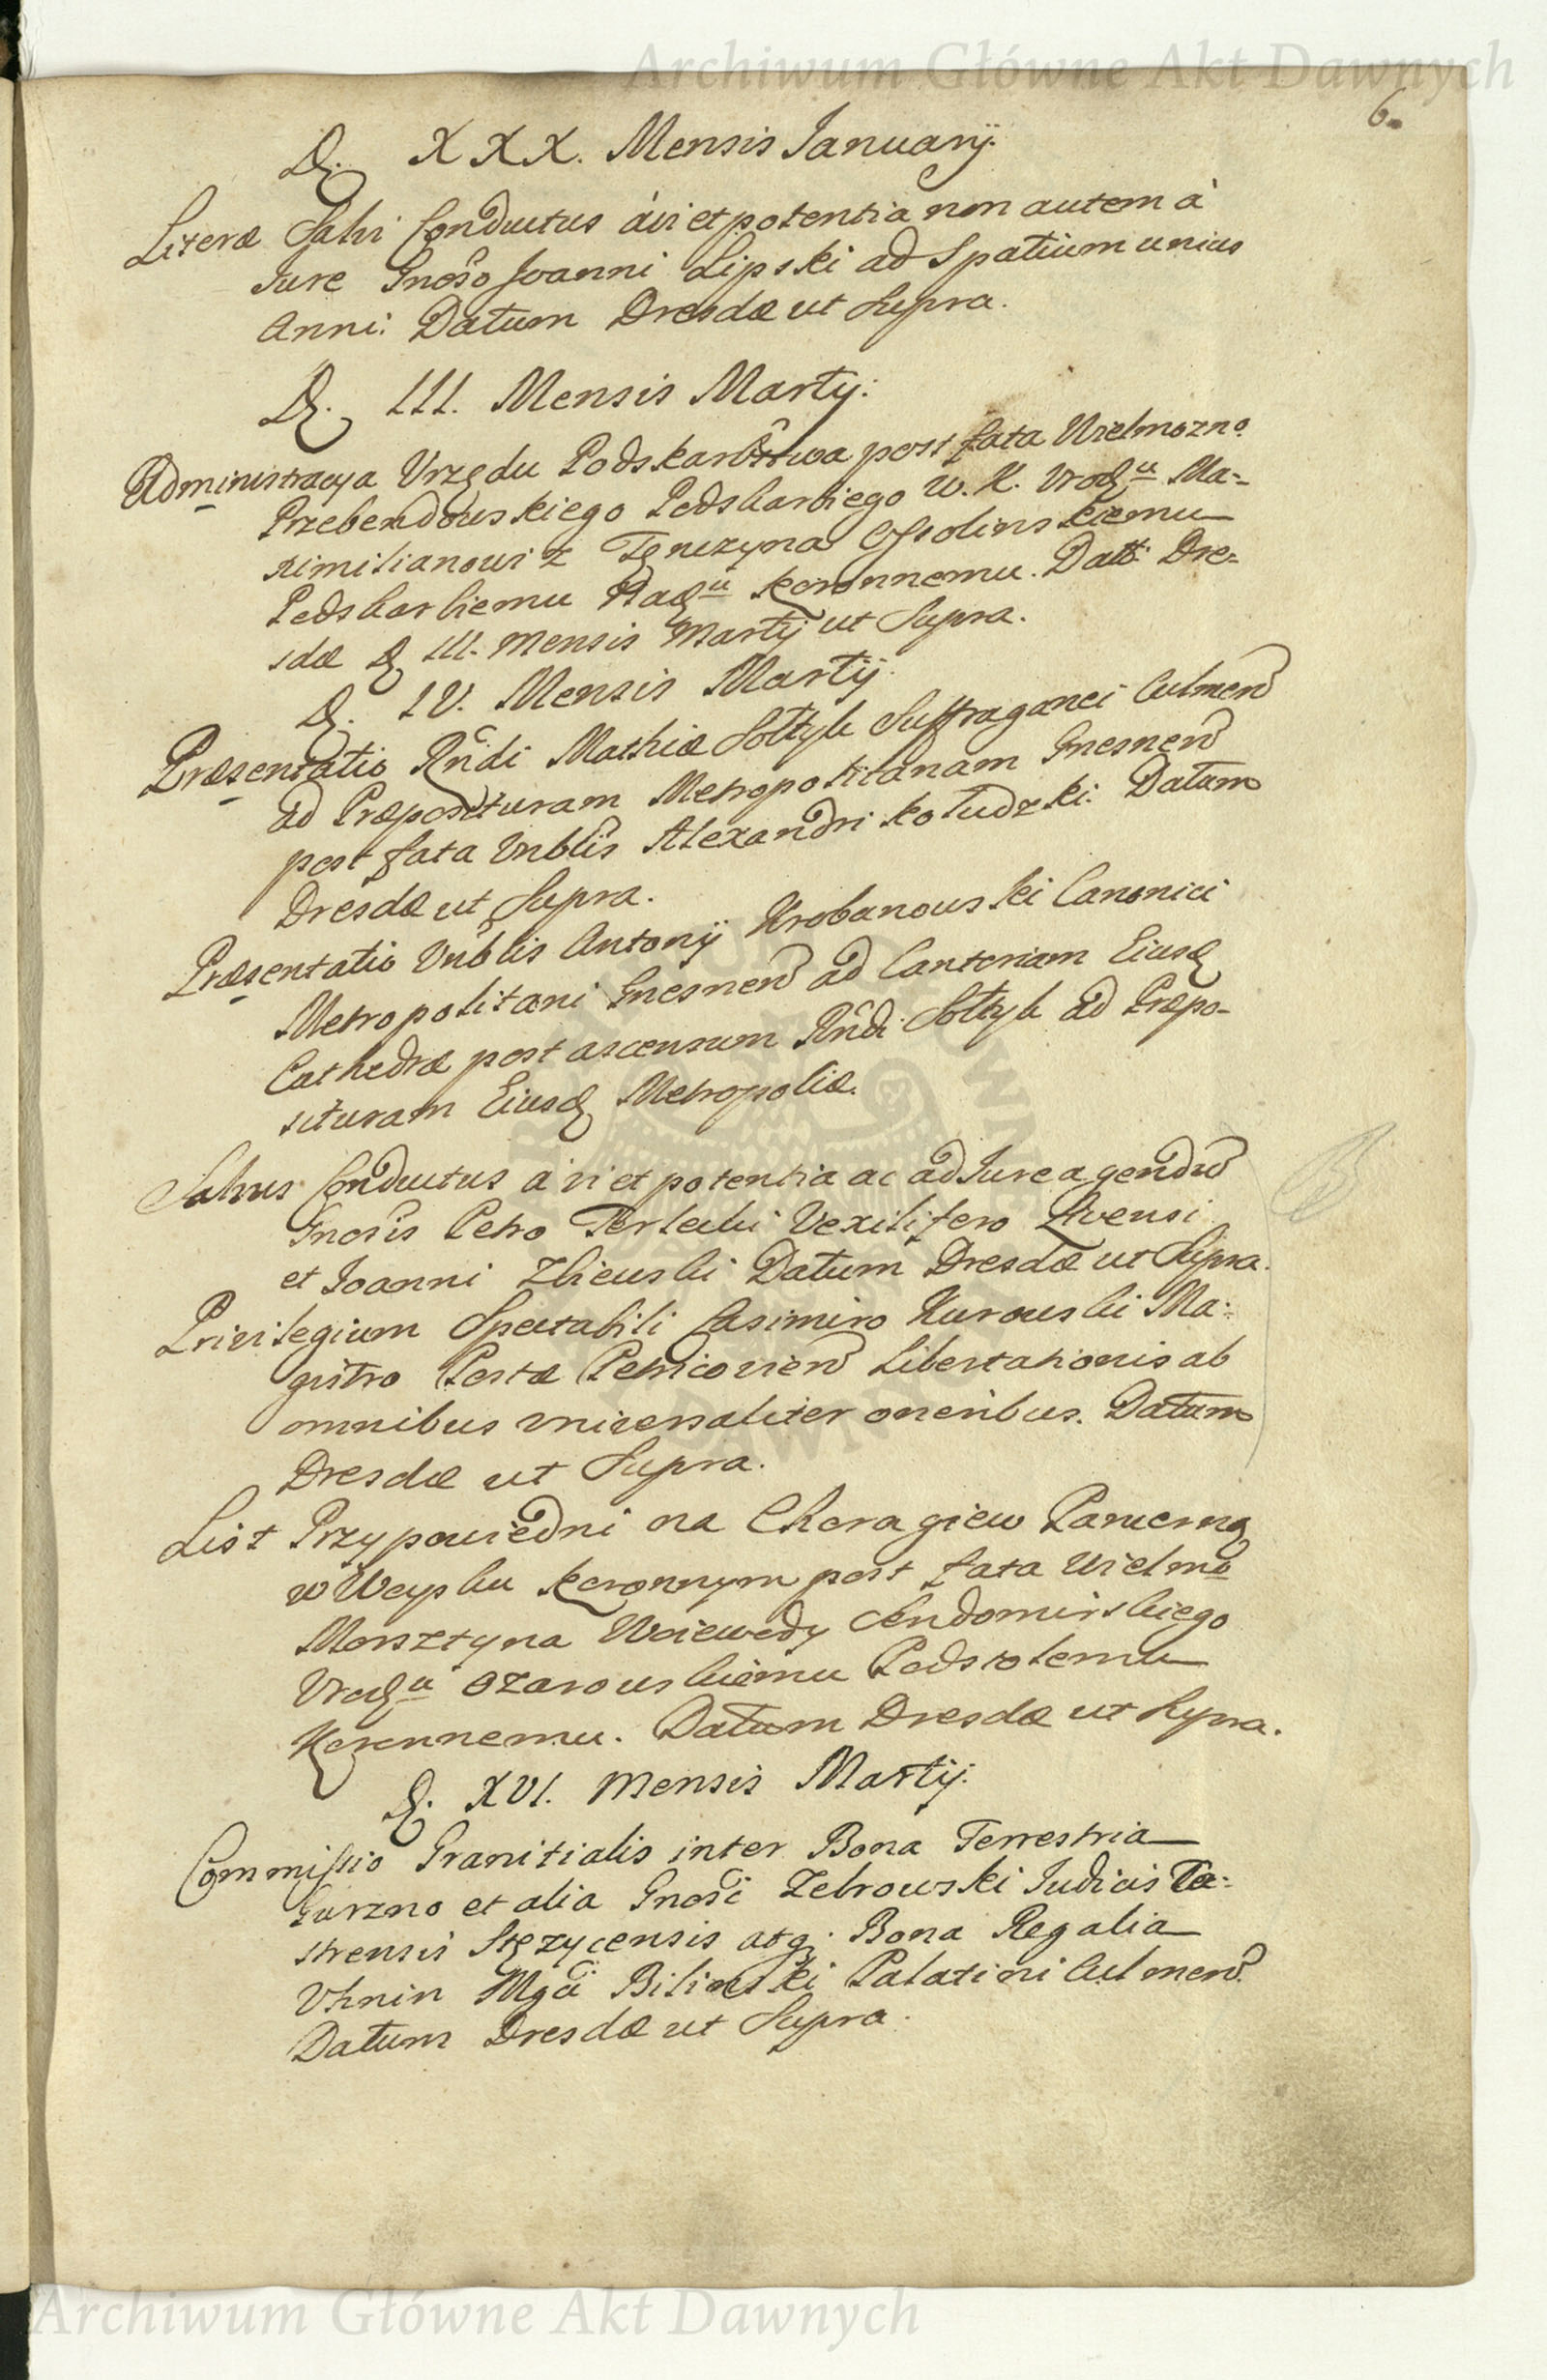 Archiwum Główne Akt Dawnych
6.
D. XXX. Mensis Ianuarij.
Literæ Salvi Conductus à vi et potentia non autem à
Iure Gnoso Ioanni Lipski ad Spatium unius
Anni. Datum Dresdæ ut Supra.
D. III. Mensis Martij.
Administracya Vrzędu Podskarbstwa post fata Wielmozno
Przebendowskiego Podskarbiego W. K. Vrodzu Ma=
ximilianowi z Tęnczyna Ossolinskiemu
Podskarbiemu Nadu Koronnemu. Datt: Dre=
sdæ D. III. Mensis Martij ut Supra.
D. IV. Mensis Martij.
Præsentatio Rndi Mathiæ Soltyk Suffraganei Culmen
ad Præposituram Metropolitanam Gnesnen
post fata Vnblis Alexandri Kołudzki. Datum
Dresdæ ut Supra.
Præsentatio Vnblis Antonij Wrobanowski Canonici
Metropolitani Gnesnen ad Cantoriam Eiusd
Cathedræ post ascensum Rndi Soltyk ad Præpo-
situram Eiusd Metropoliæ.
Salvus Conductus a vi et potentia ac ad Iure agendu
Gnosis Petro Terlecki Vexilifero Livensi
et Ioanni Zbieuski Datum Dresdæ ut Supra.
Privilegium Spectabili Casimiro Kurowski Ma=
gistro Postæ Petricovien Libertationis ab
omnibus universaliter oneribus. Datum
Dresdæ ut Supra.
List Przypowiedni na Choragiew Pancerną
w Woysku Koronnym post fata Wielmo
Morsztyna Woiewody Sendomirskiego
Vrodzu Ozarowskiemu Podstolemu
Koronnemu. Datum Dresdæ ut Supra.
D. XVI. Mensis Martij.
Commissio Granitialis inter Bona Terrestria
Gurzno et alia Gnosi Zebrowski Iudicis Ca=
strensis Stęzycensis atq; Bona Regalia
Vhnin Mgci Bilinski Palatini Culmen.
Datum Dresdæ ut Supra.
Archiwum Główne Akt Dawnych